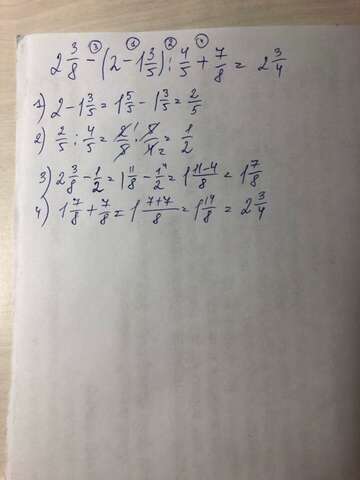 2 3/8 -③ (2 -① 1 3/5) :② 4/5 +④ 7/8 = 2 3/4
1) 2 - 1 3/5 = 1 5/5 - 1 3/5 = 2/5
2) 2/5 : 4/5 = 2/5 · 5/4 = 1/2
3) 2 3/8 - 1/2 = 1 11/8 - 1/2 = 1 11-4/8 = 1 7/8
4) 1 7/8 + 7/8 = 1 7+7/8 = 1 14/8 = 2 3/4